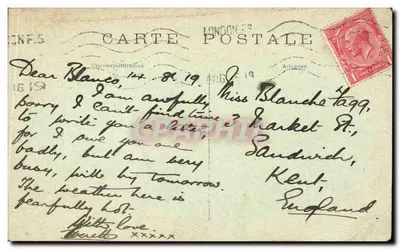 LONDON F.S
CARTE POSTALE
Correspondance
Adresse
Dear Blanco, 14.8.19
I am awfully
sorry I can't find time
to write you a letter,
for I owe you one
badly, but am very
busy, will by tomorrow.
The weather here is
fearfully hot
With love
xxxxx
Miss Blanche Fagg,
3 Market St.,
Sandwich,
Kent,
England